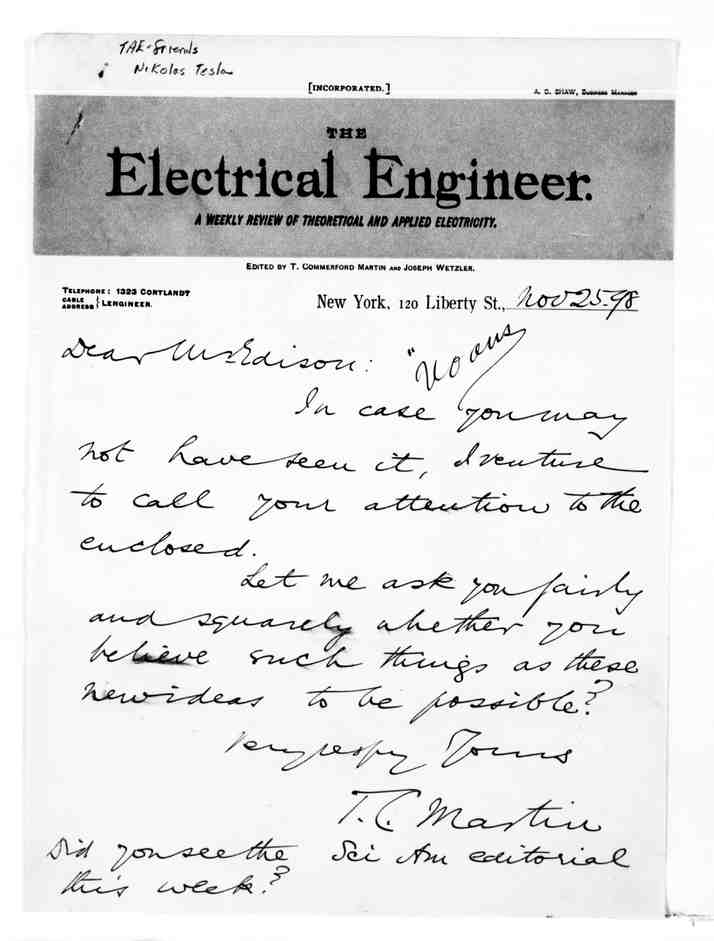 TAE - Friends
Nikolas Tesla
[INCORPORATED.]
A. C. SHAW, BUSINESS MANAGER
THE
Electrical Engineer.
A WEEKLY REVIEW OF THEORETICAL AND APPLIED ELECTRICITY.
EDITED BY T. COMMERFORD MARTIN AND JOSEPH WETZLER.
TELEPHONE: 1323 CORTLANDT
CABLE ADDRESS } LENGINEER.
New York, 120 Liberty St., Nov 25. 98
Dear Mr Edison: "No ans
In case you may
not have seen it, I venture
to call your attention to the
enclosed.
Let me ask you fairly
and squarely whether you
believe such things as these
new ideas to be possible?
Very respy Yours
T. C. Martin
Did you see the Sci Am editorial
this week?